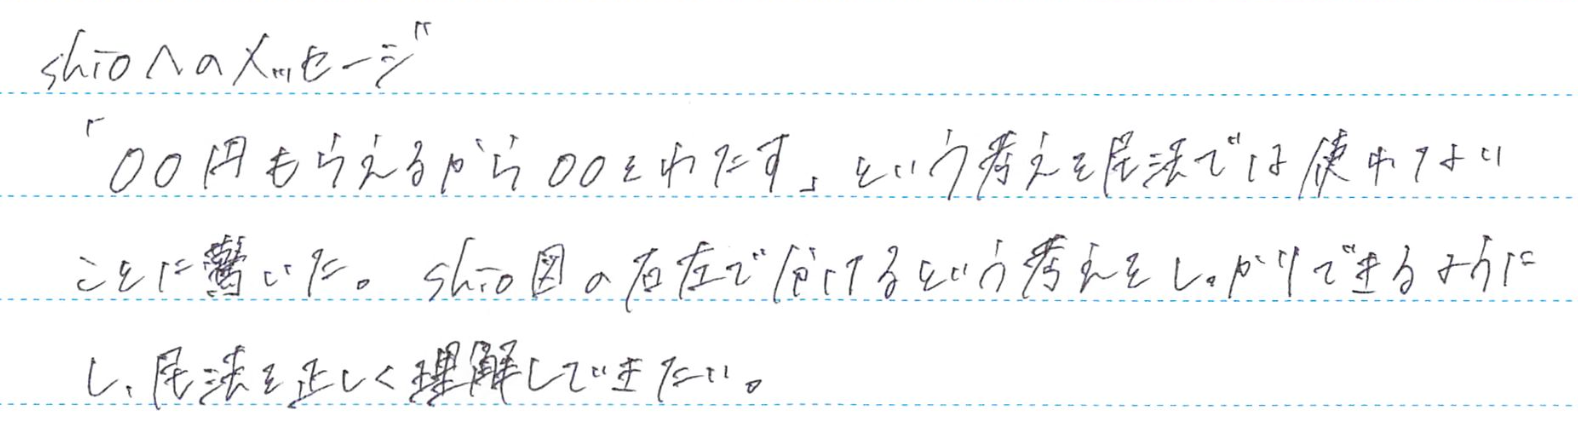 shioへのメッセージ
「〇〇円もらえるから〇〇をわたす」という考えを民法では使わない
ことに驚いた。shio図の右左で分けるという考えをしっかりできるように
し、民法を正しく理解していきたい。